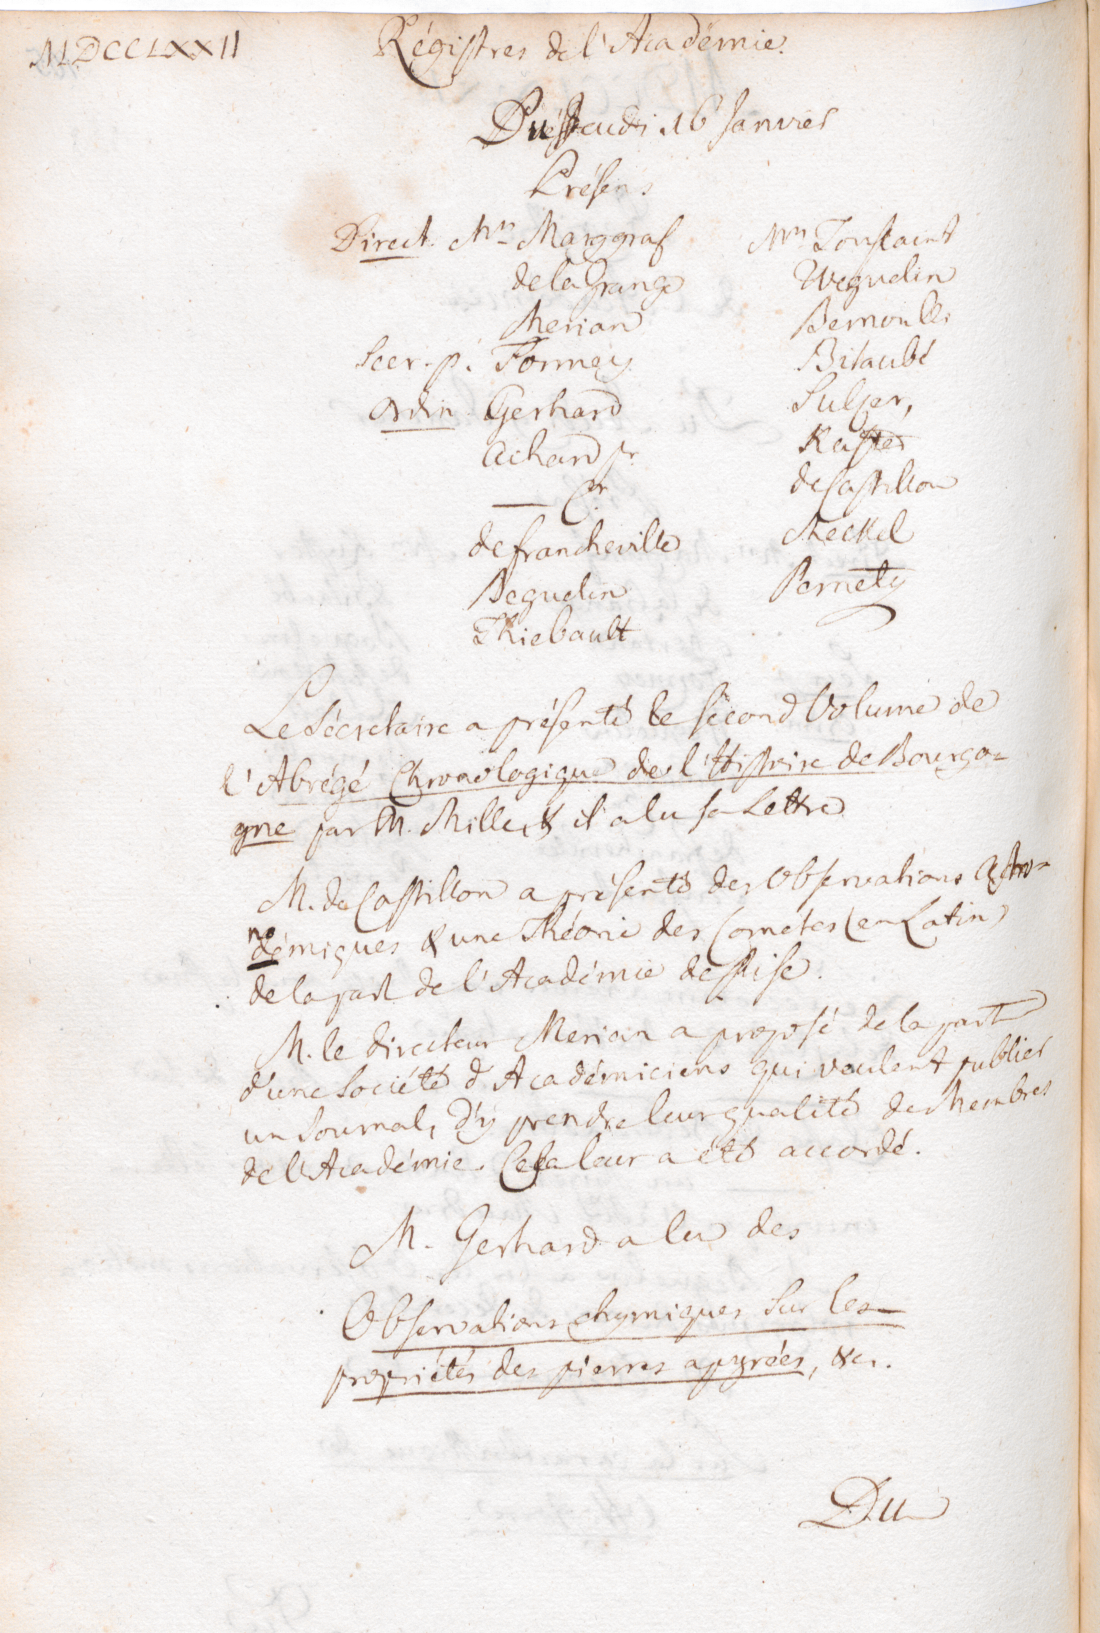 MDCCLXXII
Régistres de l'Académie.
Du Jeudi 16 Janvier
Présens
Direct. Mrs Marggraf
de la Grange
Merian
Secr. p. Formey
Ordin Gerhard
Achard sr
— Cr.
de Francheville
Beguelin
Thiebault
Mrs Toussaint
Weguelin
Bernoulli
Bitaubé
Sulzer,
Kaster
de Castillon
Meckel
Pernety
Le Sécretaire a présenté le second Volume de
l'Abrégé Chronologique de l'Histoire de Bourgo=
gne par M. Mille, & il a lu sa Lettre
M. de Castillon a présenté des Observations Astro=
nomiques & une Théorie des Cometes (en Latin)
de la part de l'Académie de Pise.
M. le directeur Merian a proposé de la part
d'une Société d'Académiciens qui veulent publier
un Journal, d'y prendre leur qualité de Membres
de l'Académie. Cela leur a été accordé.
M. Gerhard a lu des
Observations chymiques sur les
propriétés des pierres apyrées, &c.
Du